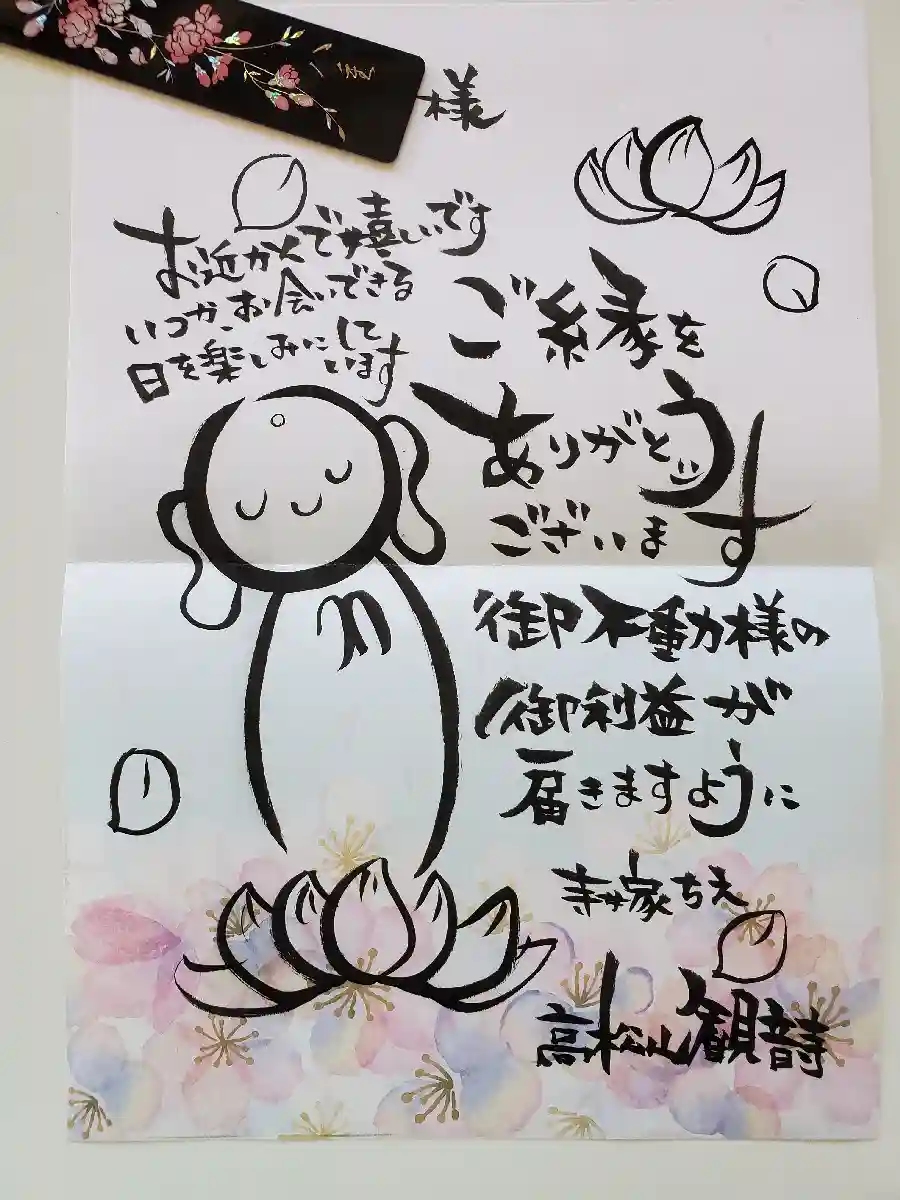 様
お近くで嬉しいです
いつか、お会いできる
日を楽しみにして
います
ご縁を
ありがとう
ございます
御不動様の
御利益が
届きますように
寺井家ちえ
高松山観音寺